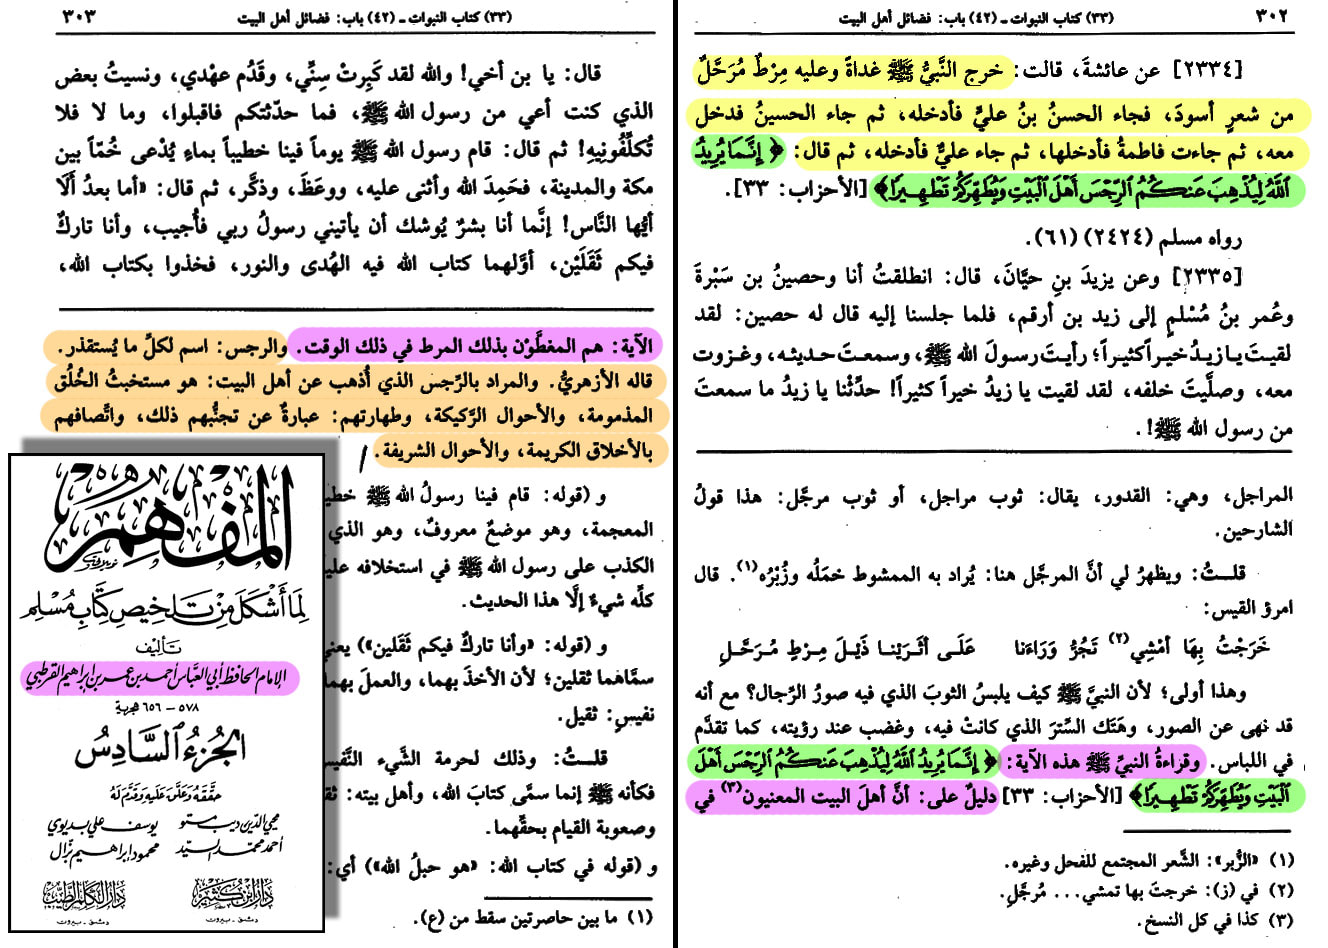 ٣٠٢ (٣٣) كتاب النبوات ـ (٤٢) باب: فضائل أهل البيت
[٢٣٣٤] عن عائشةَ، قالت: خرج النَّبيُّ ﷺ غداةً وعليه مِرْطٌ مُرَحَّلٌ
من شعرٍ أسودَ، فجاء الحسنُ بنُ عليٍّ فأدخله، ثم جاء الحسينُ فدخل
معه، ثم جاءت فاطمةُ فأدخلها، ثم جاء عليٌّ فأدخله، ثم قال: ﴿ إِنَّمَا يُرِيدُ
ٱللَّهُ لِيُذْهِبَ عَنكُمُ ٱلرِّجْسَ أَهْلَ ٱلْبَيْتِ وَيُطَهِّرَكُمْ تَطْهِيرًا﴾ [الأحزاب: ٣٣].
رواه مسلم (٢٤٢٤) (٦١).
[٢٣٣٥] وعن يزيدَ بنِ حيَّانَ، قال: انطلقتُ أنا وحصينُ بن سَبْرةَ
وعُمر بنُ مُسْلمٍ إلى زيد بن أرقم، فلما جلسنا إليه قال له حصين: لقد
لقيتَ يا زيدُ خيراً كثيراً؛ رأيتَ رسولَ الله ﷺ، وسمعتَ حديثه، وغزوت
معه، وصلَّيتَ خلفه، لقد لقيت يا زيدُ خيراً كثيراً! حدِّثْنا يا زيدُ ما سمعتَ
من رسول الله ﷺ!.
المراجل، وهي: القدور، يقال: ثوب مراجل، أو ثوب مرجَّل: هذا قولُ
الشارحين.
قلـتُ: ويظهرُ لي أنَّ المرجَّل هنا: يُراد به الممشوط خمَلُه وزُبْرُه(١). قال
امرؤ القيس:
خَرَجْتُ بِهَا أمْشِي(٢) تَجُرُّ وَرَاءَنا عَلَـى أثَرَيْنـا ذَيْلَ مِرْطٍ مُـرَحَّـلِ
وهذا أولى؛ لأن النبيَّ ﷺ كيف يلبسُ الثوبَ الذي فيه صورُ الرِّجال؟ مع أنه
قد نهى عن الصور، وهَتَك السِّترَ الذي كانتْ فيه، وغضب عند رؤيته، كما تقدَّم
في اللباس. وقراءةُ النبيِّ ﷺ هذه الآية: ﴿ إِنَّمَا يُرِيدُ ٱللَّهُ لِيُذْهِبَ عَنكُمُ ٱلرِّجْسَ أَهْلَ
ٱلْبَيْتِ وَيُطَهِّرَكُمْ تَطْهِيرًا﴾ [الأحزاب: ٣٣] دليلٌ على: أنَّ أهلَ البيت المعنيون(٣) في
(١) «الزُّبر»: الشَّعر المجتمع للفحل وغيره.
(٢) في (ز): خرجتَ بها تمشي... مُرجَّلِ.
(٣) كذا في كل النسخ.
(٣٣) كتاب النبوات ـ (٤٢) باب: فضائل أهل البيت ٣٠٣
قال: يا بن أخي! والله لقد كَبِرتْ سِنِّي، وقَدُم عهْدي، ونسيتُ بعض
الذي كنت أعي من رسول الله ﷺ، فما حدّثتكم فاقبلوا، وما لا فلا
تُكلِّفُونيهِ! ثم قال: قام رسول الله ﷺ يوماً فينا خطيباً بماءٍ يُدْعى خُمّاً بين
مكة والمدينة، فحَمِدَ الله وأثنى عليه، ووعَظَ، وذكَّر، ثم قال: «أما بعدُ ألَا
أيُّها النَّاس! إنَّما أنا بشرٌ يُوشك أن يأتيني رسولُ ربي فأُجيب، وأنا تاركٌ
فيكم ثَقَلَيْن، أوّلهما كتاب الله فيه الهُدى والنور، فخذوا بكتاب الله،
الآية: هم المغطَّوْن بذلك المرط في ذلك الوقت. والرجس: اسم لكلِّ ما يُستقذر.
قاله الأزهريُّ. والمراد بالرِّجس الذي أُذهب عن أهل البيت: هو مستخبثُ الخُلُق
المذمومة، والأحوال الرَّكيكة، وطهارتهم: عبارةٌ عن تجنُّبهم ذلك، واتَّصافهم
بالأخلاق الكريمة، والأحوال الشريفة.
و (قوله: قام فينا رسولُ الله ﷺ
المعجمة، وهو موضعٌ معروفٌ، وهو الذي
الكذب على رسول الله ﷺ في استخلافه
كلِّه شيءٌ إلَّا هذا الحديث.
و (قوله: «وأنا تاركٌ فيكم ثَقَلين»)
سمَّاهما ثقلين؛ لأن الأخذَ بهما، والعملَ بهما
نفيسٍ: ثقيل.
قلـتُ: وذلك لحرمة الشَّيء
فكأنه ﷺ إنما سمَّى كتابَ الله، وأهل بيته:
وصعوبة القيام بحقِّهما.
و (قوله في كتاب الله: «هو حبلُ الله») أي:
(١) ما بين حاصرتين سقط من (ع).
المفهم
لِمَا أَشْكَلَ مِنْ تَلخيصِ كِتَابِ مُسْلِم
تأليف
الإمام الحافظ أبي العبَّاس أحمد بن عمر بن إبراهيم القرطبي
٥٧٨ – ٦٥٦ هجرية
الجزءُ السَّادِسُ
حقَّقَهُ وَعَلَّقَ عَلَيهِ وَقَدَّمَ لَهُ
محيي الدين ديب مستو يوسف علي بديوي
أحمد محمد السيد محمود إبراهيم بزال
دار ابن كثير دار الكلم الطيب
دمشق ـ بيروت دمشق ـ بيروت